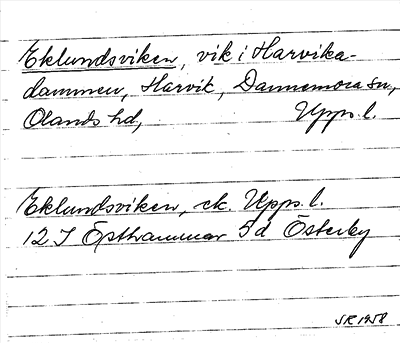 Eklundsviken, vik i Harvika-
dammen, Harvik, Dannemora sn,
Olands hd, Upps. l.
Eklundsviken, ek. Upps. l.
12 I Östhammar 5d Österby
SR 1958